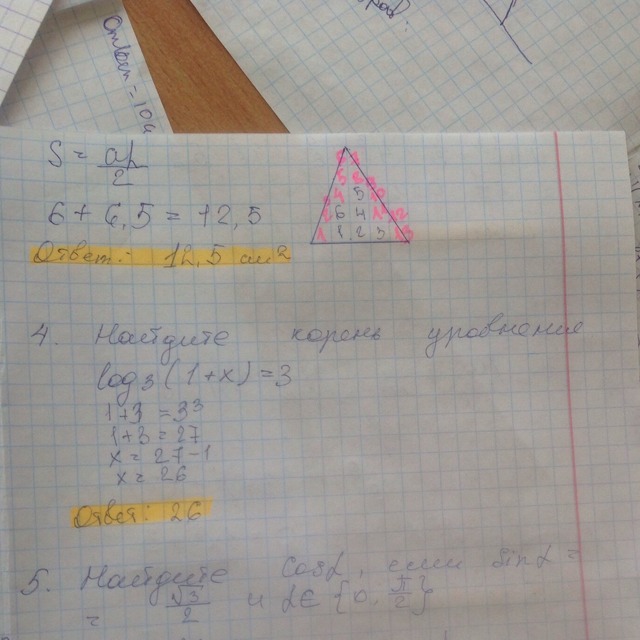 Ответ = 10
S = ah/2
6 + 6,5 = 12,5
Ответ: 12,5 см²
4. Найдите корень уравнения
log₃(1+x)=3
1+3 = 3³
1+3 = 27
x = 27-1
x = 26
Ответ: 26
5. Найдите cosα, если sinα =
= √3/2 и α∈{0, π/2}